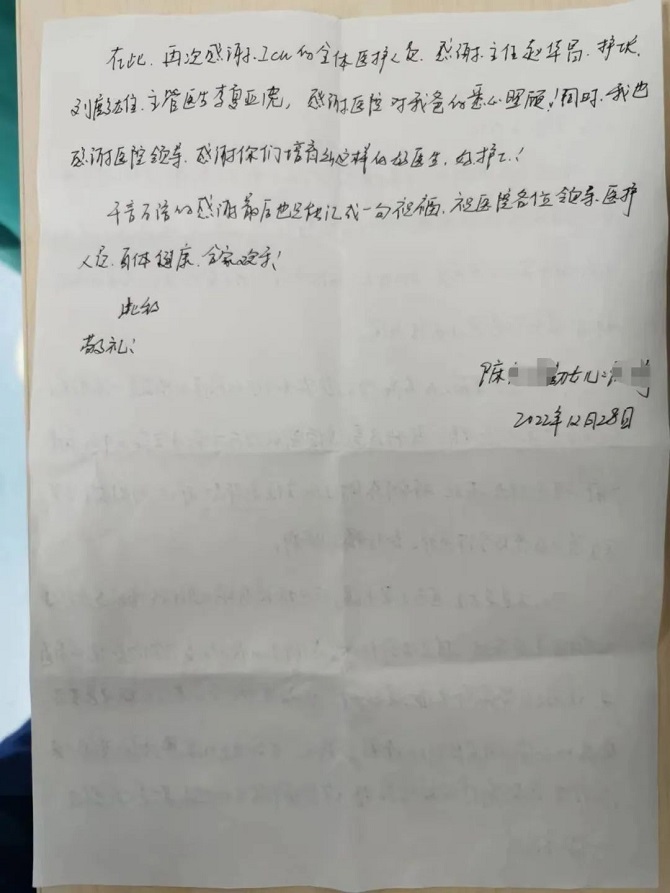 在此、再次感谢、Icu的全体医护人员、感谢、主任赵华昌、护长
主管医生李亚, 感谢医院对我爸的悉心照顾！同时、我也
感谢医院领导、感谢你们培育出这样的好医生、好护士！
千言万语的感谢最后也只能汇成一句祝福、祝医院各位领导、医护
人员、身体健康、全家欢乐！
此致
敬礼！
陈 女儿:
2022年12月28日